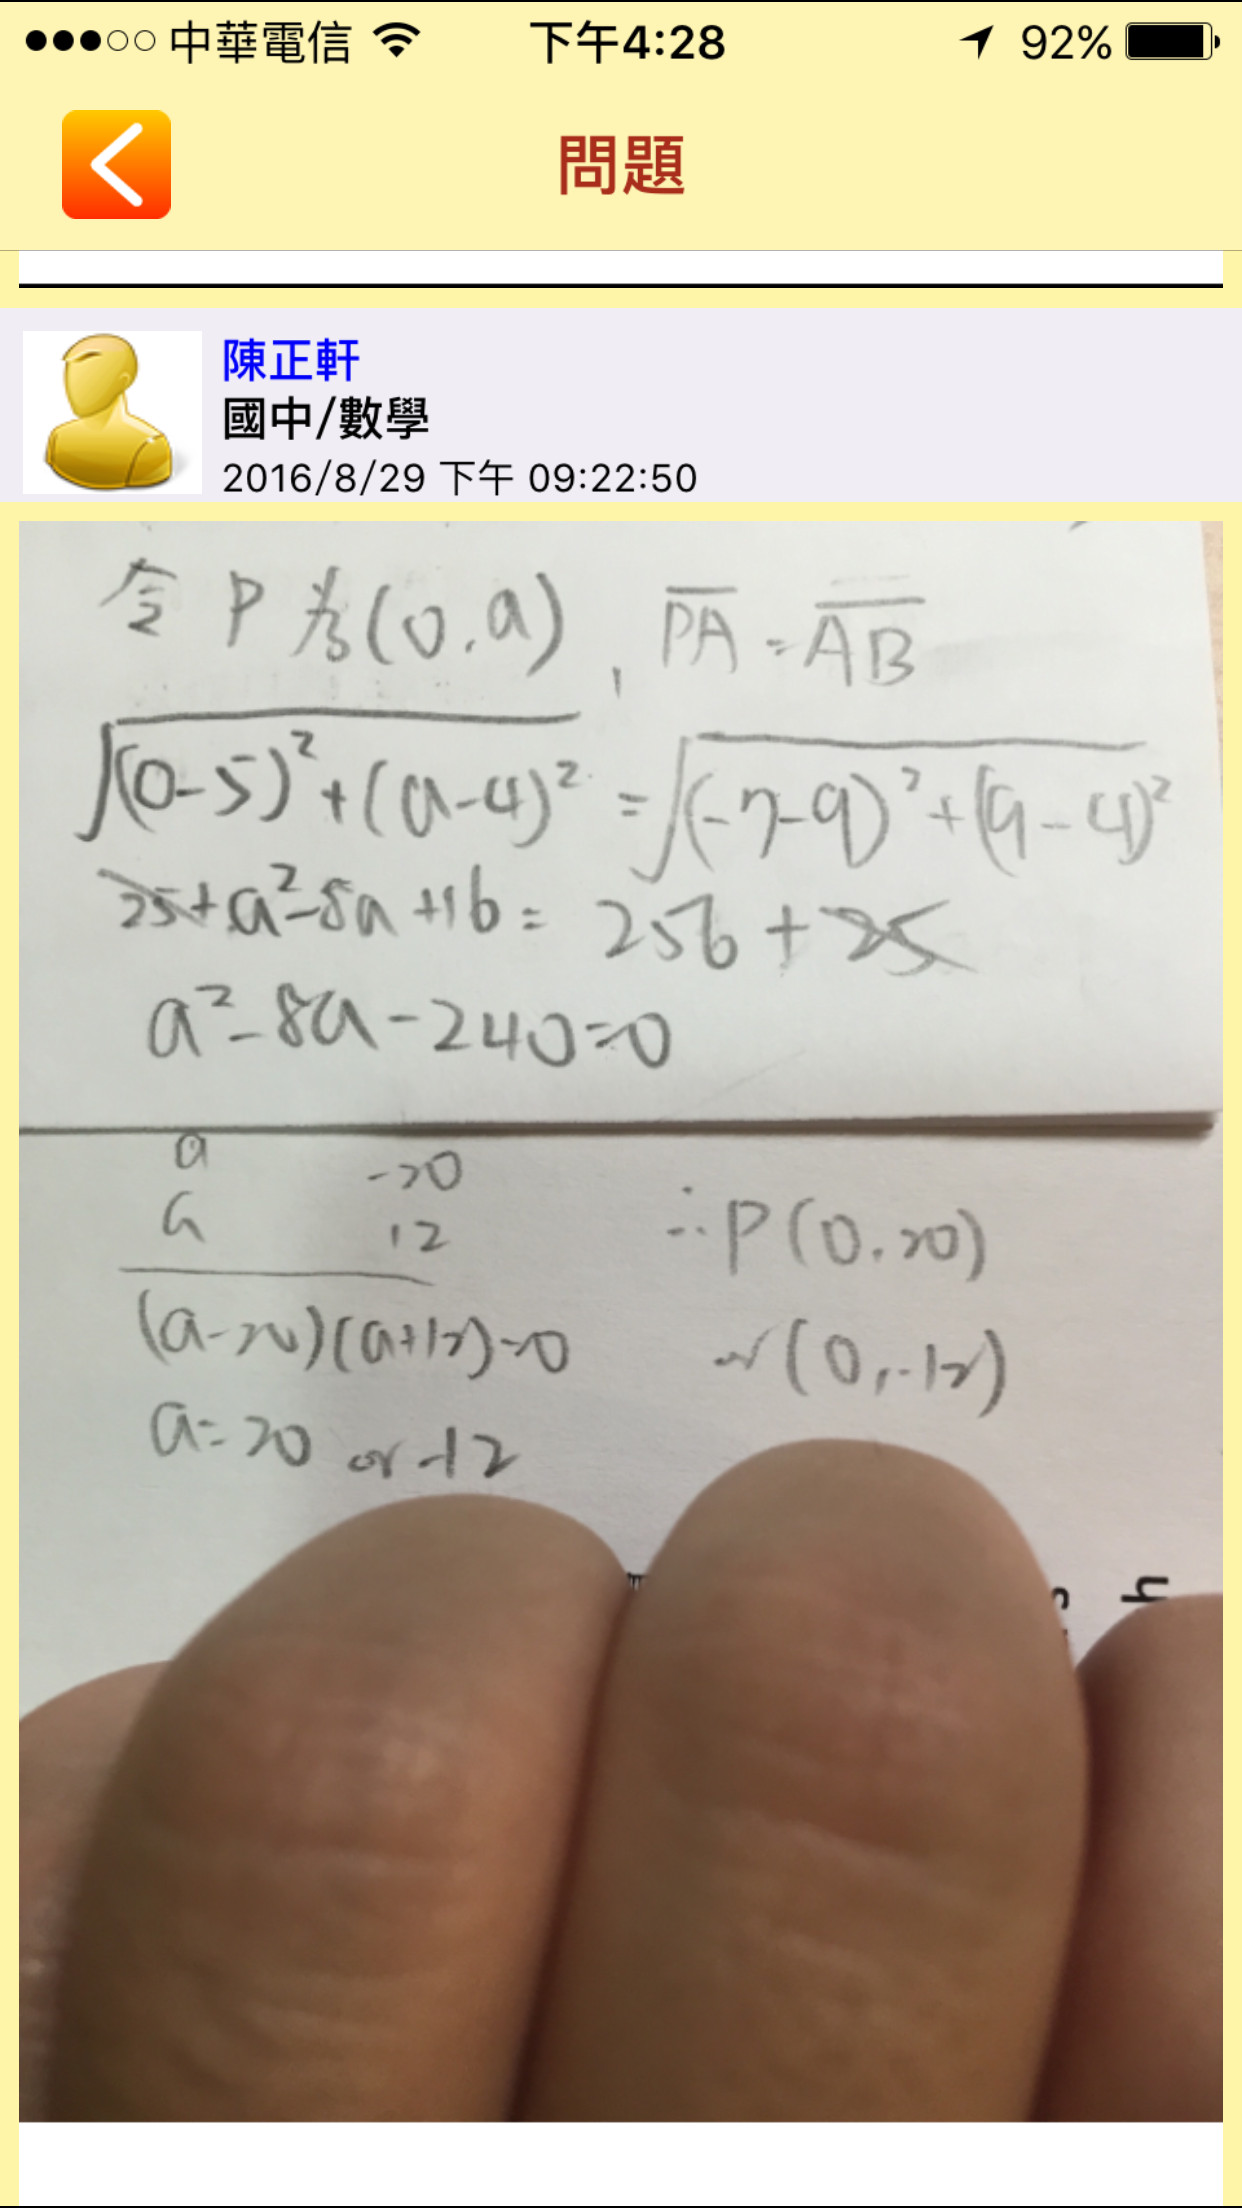 中華電信 下午4:28 92%
問題
陳正軒
國中/數學
2016/8/29 下午 09:22:50
令 P 為(0,a), PA = AB
√(0-5)²+(a-4)² = √(-7-9)²+(9-4)²
25+a²-8a+16 = 256+25
a²-8a-240=0
a -20
a 12
(a-20)(a+12)=0
a=20 or -12
∴P(0,20)
or(0,-12)
h